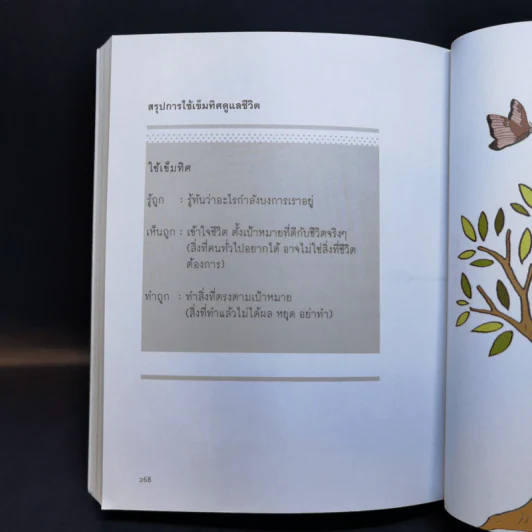 สรุปการใช้เข็มทิศดูแลชีวิต
ใช้เข็มทิศ
รู้ถูก : รู้ทันว่าอะไรกำลังบงการเราอยู่
เห็นถูก : เข้าใจชีวิต ตั้งเป้าหมายที่ดีกับชีวิตจริงๆ
(สิ่งที่คนทั่วไปอยากได้ อาจไม่ใช่สิ่งที่ชีวิต
ต้องการ)
ทำถูก : ทำสิ่งที่ตรงตามเป้าหมาย
(สิ่งที่ทำแล้วไม่ได้ผล หยุด อย่าทำ)
268